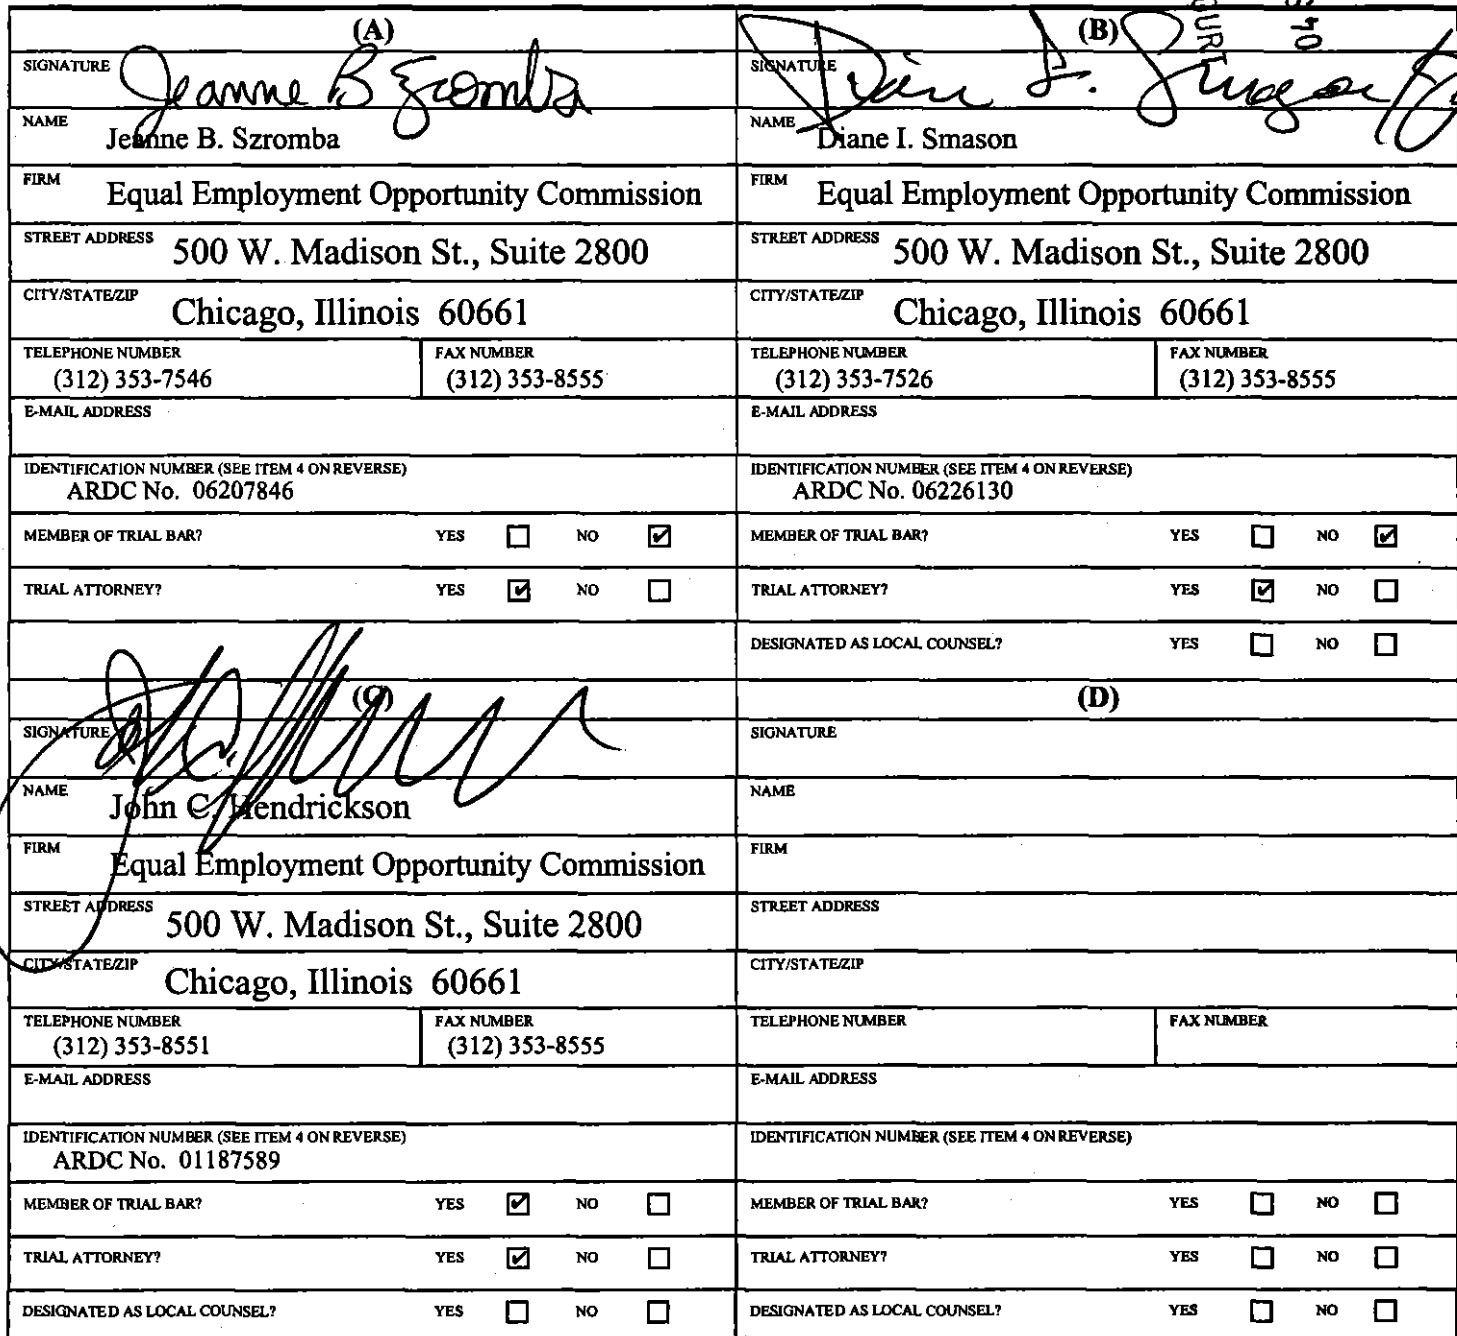 (A)
SIGNATURE Jeanne B Szromba
NAME Jeanne B. Szromba
FIRM Equal Employment Opportunity Commission
STREET ADDRESS 500 W. Madison St., Suite 2800
CITY/STATE/ZIP Chicago, Illinois 60661
TELEPHONE NUMBER FAX NUMBER
(312) 353-7546 (312) 353-8555
E-MAIL ADDRESS
IDENTIFICATION NUMBER (SEE ITEM 4 ON REVERSE)
ARDC No. 06207846
MEMBER OF TRIAL BAR? YES ☐ NO ☑
TRIAL ATTORNEY? YES ☑ NO ☐
(B)
SIGNATURE Diane I. Smason
NAME Diane I. Smason
FIRM Equal Employment Opportunity Commission
STREET ADDRESS 500 W. Madison St., Suite 2800
CITY/STATE/ZIP Chicago, Illinois 60661
TELEPHONE NUMBER FAX NUMBER
(312) 353-7526 (312) 353-8555
E-MAIL ADDRESS
IDENTIFICATION NUMBER (SEE ITEM 4 ON REVERSE)
ARDC No. 06226130
MEMBER OF TRIAL BAR? YES ☐ NO ☑
TRIAL ATTORNEY? YES ☑ NO ☐
DESIGNATED AS LOCAL COUNSEL? YES ☐ NO ☐
(C)
SIGNATURE
NAME John C. Hendrickson
FIRM Equal Employment Opportunity Commission
STREET ADDRESS 500 W. Madison St., Suite 2800
CITY/STATE/ZIP Chicago, Illinois 60661
TELEPHONE NUMBER FAX NUMBER
(312) 353-8551 (312) 353-8555
E-MAIL ADDRESS
IDENTIFICATION NUMBER (SEE ITEM 4 ON REVERSE)
ARDC No. 01187589
MEMBER OF TRIAL BAR? YES ☑ NO ☐
TRIAL ATTORNEY? YES ☑ NO ☐
DESIGNATED AS LOCAL COUNSEL? YES ☐ NO ☐
(D)
SIGNATURE
NAME
FIRM
STREET ADDRESS
CITY/STATE/ZIP
TELEPHONE NUMBER FAX NUMBER
E-MAIL ADDRESS
IDENTIFICATION NUMBER (SEE ITEM 4 ON REVERSE)
MEMBER OF TRIAL BAR? YES ☐ NO ☐
TRIAL ATTORNEY? YES ☐ NO ☐
DESIGNATED AS LOCAL COUNSEL? YES ☐ NO ☐